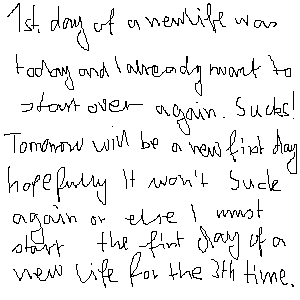 1st day of a new life was
today and I already want to
start over again. Sucks!
Tomorrow will be a new first day
hopefully it won't suck
again or else I must
start the first day of a
new life for the 3th time.